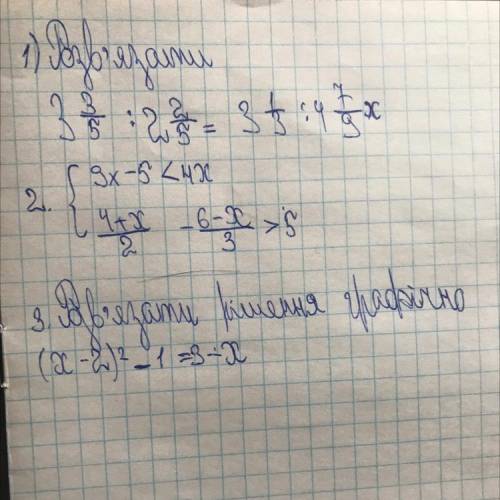 1) Взв'язати
3 3/5 : 2 2/5 = 3 1/3 : 4 7/9 x
2. { 9x-5 < 4x
(4+x)/2 - (6-x)/3 > 5
3. Взв'язати рішення графічно
(x-2)² - 1 = 3-x